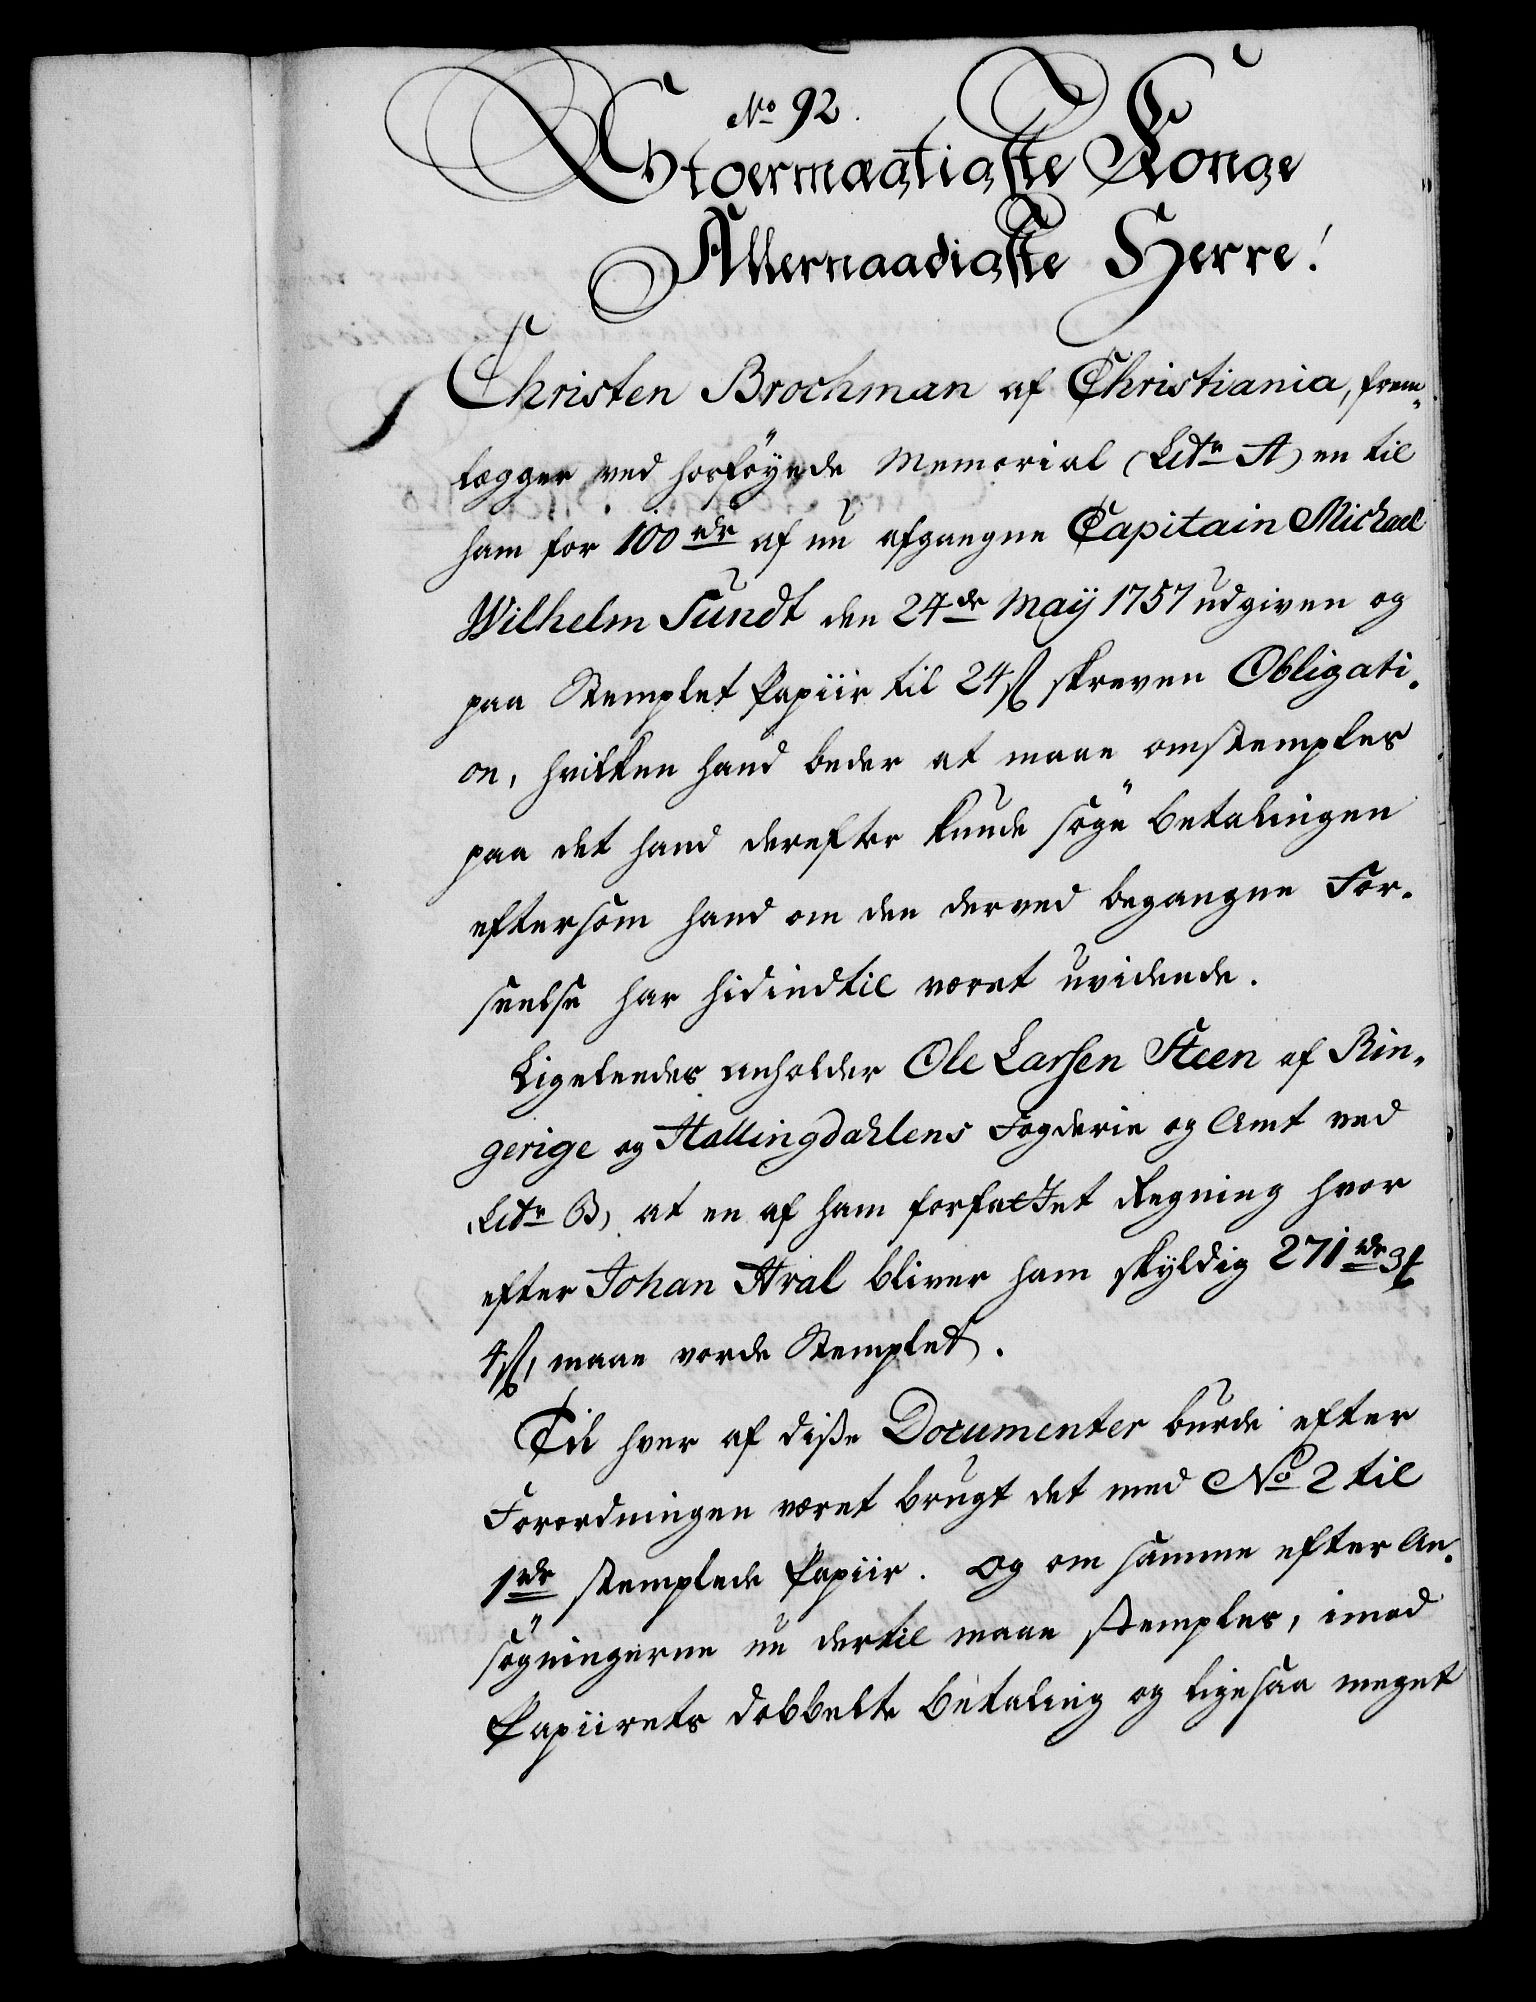 No 92.
Stoermægtigste Konge
Allernaadigste Herre!
Christen Brochman af Christiania, frem-
legger ved hosföyede Memorial (Litr A) en til
ham for 100 rdr af nu afgangne Capitain Michael
Wilhelm Sundt den 24de Maÿ 1757 udgiven og
paa Stemplet Papiir til 24 ß skreven Obligati-
on, hvilken hand beder at maae omstemples
paa det hand derefter kunde söge betalingen
eftersom hand om den derved begangne For-
seelse har hidindtil været uvidende.
Ligeleedes anholder Ole Larsen Steen af Rin-
gerige og Hallingdahlens Fogderie og Amt ved
(Litr B) at en af ham forfattet Regning hvor
efter Johan Aral bliver ham skyldig 271 rdr 3 ℳ
4 ß, maae vorde Stemplet.
Til hver af diße Documenter burde efter
Forordningen været brugt det med No 2 til
1 rdr stemplede Papiir. Og om samme efter An-
sögningerne nu dertil maae stemples, imod
Papiirets dobbelte betaling og ligesaa meget